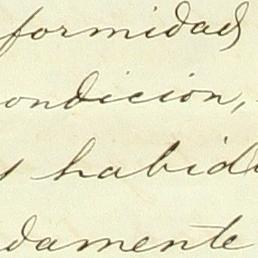 formidad
ondicion,
s habid
damente